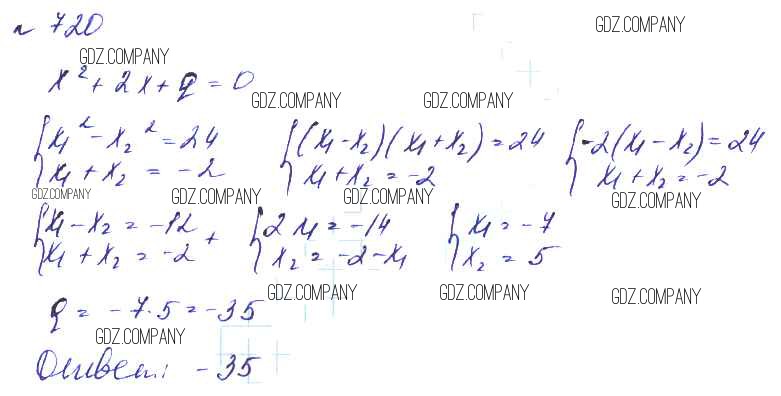 № 720
GDZ.COMPANY
GDZ.COMPANY
x² + 2x + q = 0
GDZ.COMPANY GDZ.COMPANY
{x₁² - x₂² = 24 {(x₁ - x₂)(x₁ + x₂) = 24 {-2(x₁ - x₂) = 24
x₁ + x₂ = -2 x₁ + x₂ = -2 x₁ + x₂ = -2
GDZ.COMPANY GDZ.COMPANY GDZ.COMPANY GDZ.COMPANY
{x₁ - x₂ = -12 + {2x₁ = -14 {x₁ = -7
x₁ + x₂ = -2 x₂ = -2 - x₁ x₂ = 5
GDZ.COMPANY GDZ.COMPANY GDZ.COMPANY
q = -7·5 = -35
GDZ.COMPANY
Ответ: -35